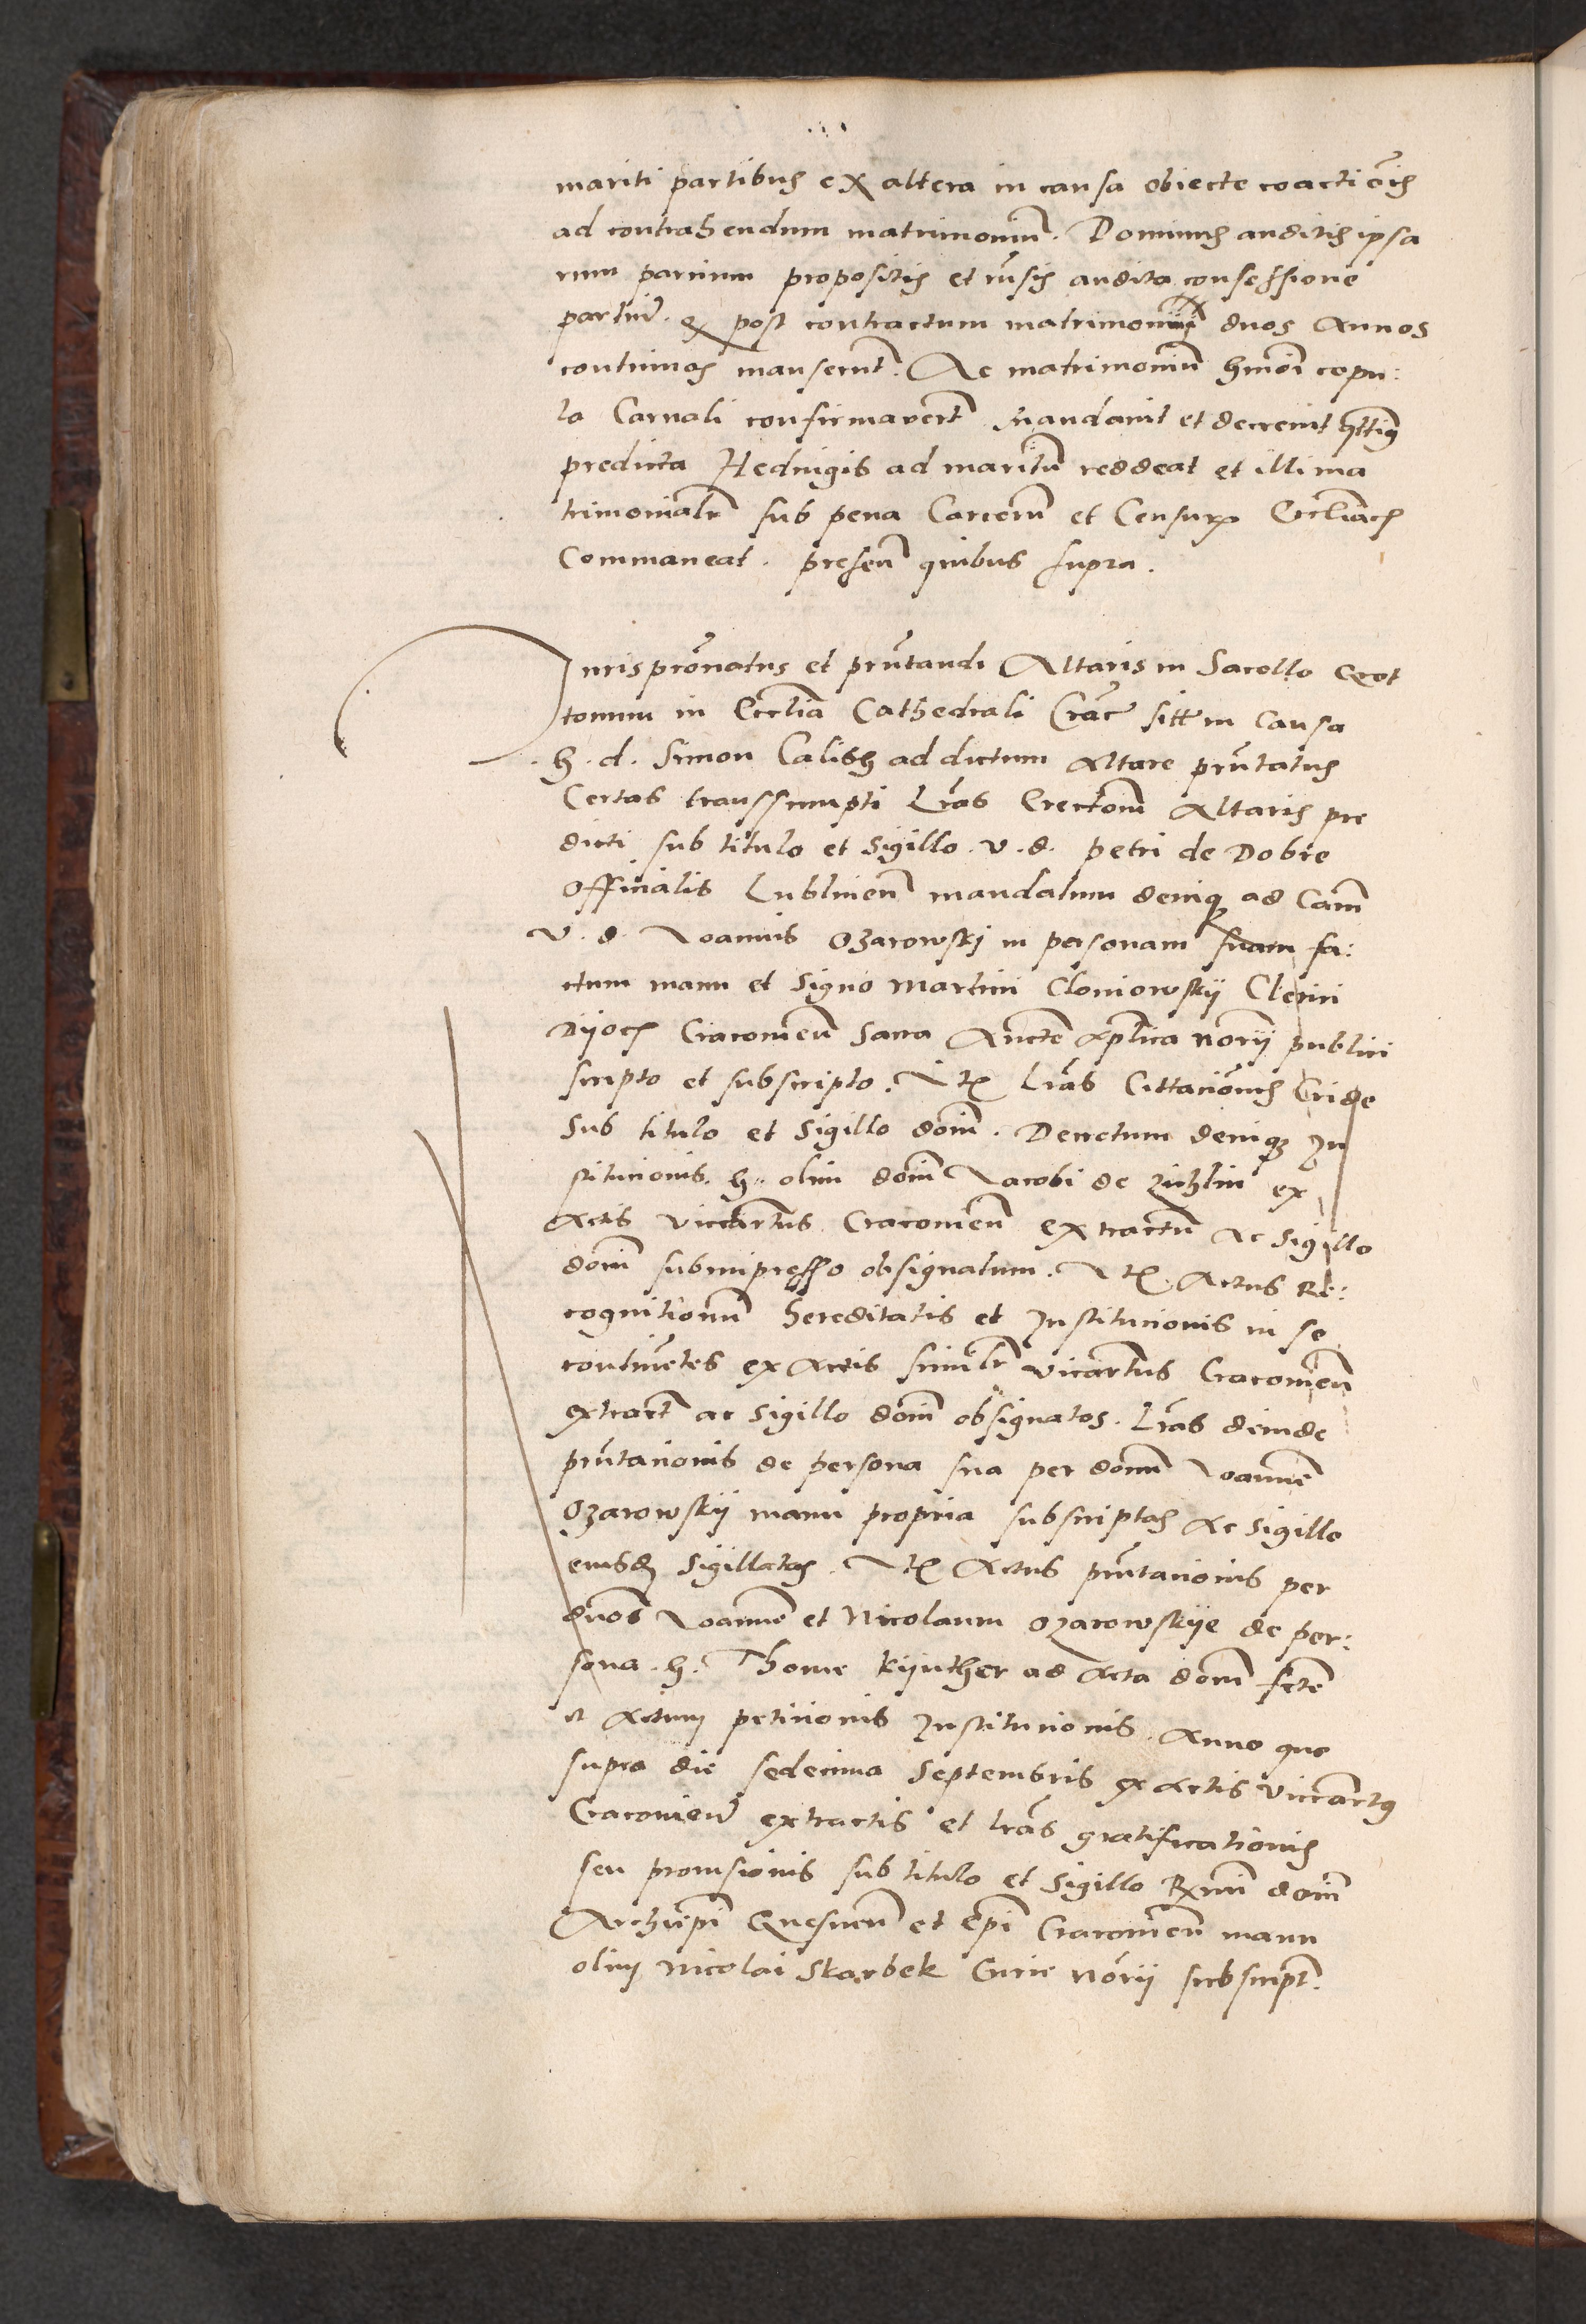 mariti partibus ex altera in causa obiecte coactiōis
ad contrahendum matrimoniū. Dominus auditis ipsa
rum parcium propositis et rn̄sis audita confessione
partiū. q̨ post contractum matrimonium duos Annos
continuos manserūt. Ac matrimoniū hmōi copu:
la Carnali confirmavert̄ Mandavit et decrevit
predicta Hedvigis ad maritū reddeat et illi ma
trimonialr̄ sub pena Carcerū et Censurar̨ Eccl̄iacs
Commaneat. presen̄ quibus supra.
Jurispr̄onatus et prn̄tandi Altaris in Sacello Grot
tonum in Eccl̄ia Cathedrali Crac̄ siti in Causa
.h. d. Simon Calish ad dictum Altare prn̄tatus
Certas transsumpti Lr̄as Erectōni Altaris pre
dicti sub titulo et sigillo .v. d. petri de Dobre
Officialis Lublinen̄ mandatum deniq̨ ad Cam̄
v. d. Joannis Ozarowskj in personam suam fa:
ctum manu et signo Martini Cloniowskÿ Clerici
Dÿoc̄ Cracovien̄ Sacra Auctē Apl̄ica norȳ publici
scripto et subscripto. Itē Lr̄as Cittaciōnis Cride
Sub titulo et Sigillo dōni. Decretum deniq̨ In
stitucionis. h. olim dōni Jacobi de Zichlin ex
Actis vicc̄artus Cracovien̄ extractū ac Sigillo
dōni subimpresso obsignatum. Itē Actus Re:
cognitionū hereditatis et Institucionis in se
continētes ex Actis similr̄ vicart̄us Cracovien̄
extract̄ ac Sigillo dōni obsignatos. Lr̄as deinde
prn̄tacionis de persona sua per dōnū Joannē
Ozarowskÿ manu propria subscriptas ac Sigillo
eiusdē Sigillatas. Itē Actus prn̄tacionis per
dn̄os Joannē et Nicolaum Ozarowskÿe de per:
sona .h. Thome Kÿnther ad Acta dōni fctē
et Actum peticionis Institucionis Anno quo
supra die sedecima Septembris ex Actis vicc̄artus
Cracovien̄ extractis et lr̄as gratificationis
seu provisionis sub titulo et Sigillo Rx̄mi dōni
Archiep̄i Gnesnen̄ et Ep̄i Cracovien̄ manu
olim Nicolai Skarbek Curie nōrÿ subscript̄.